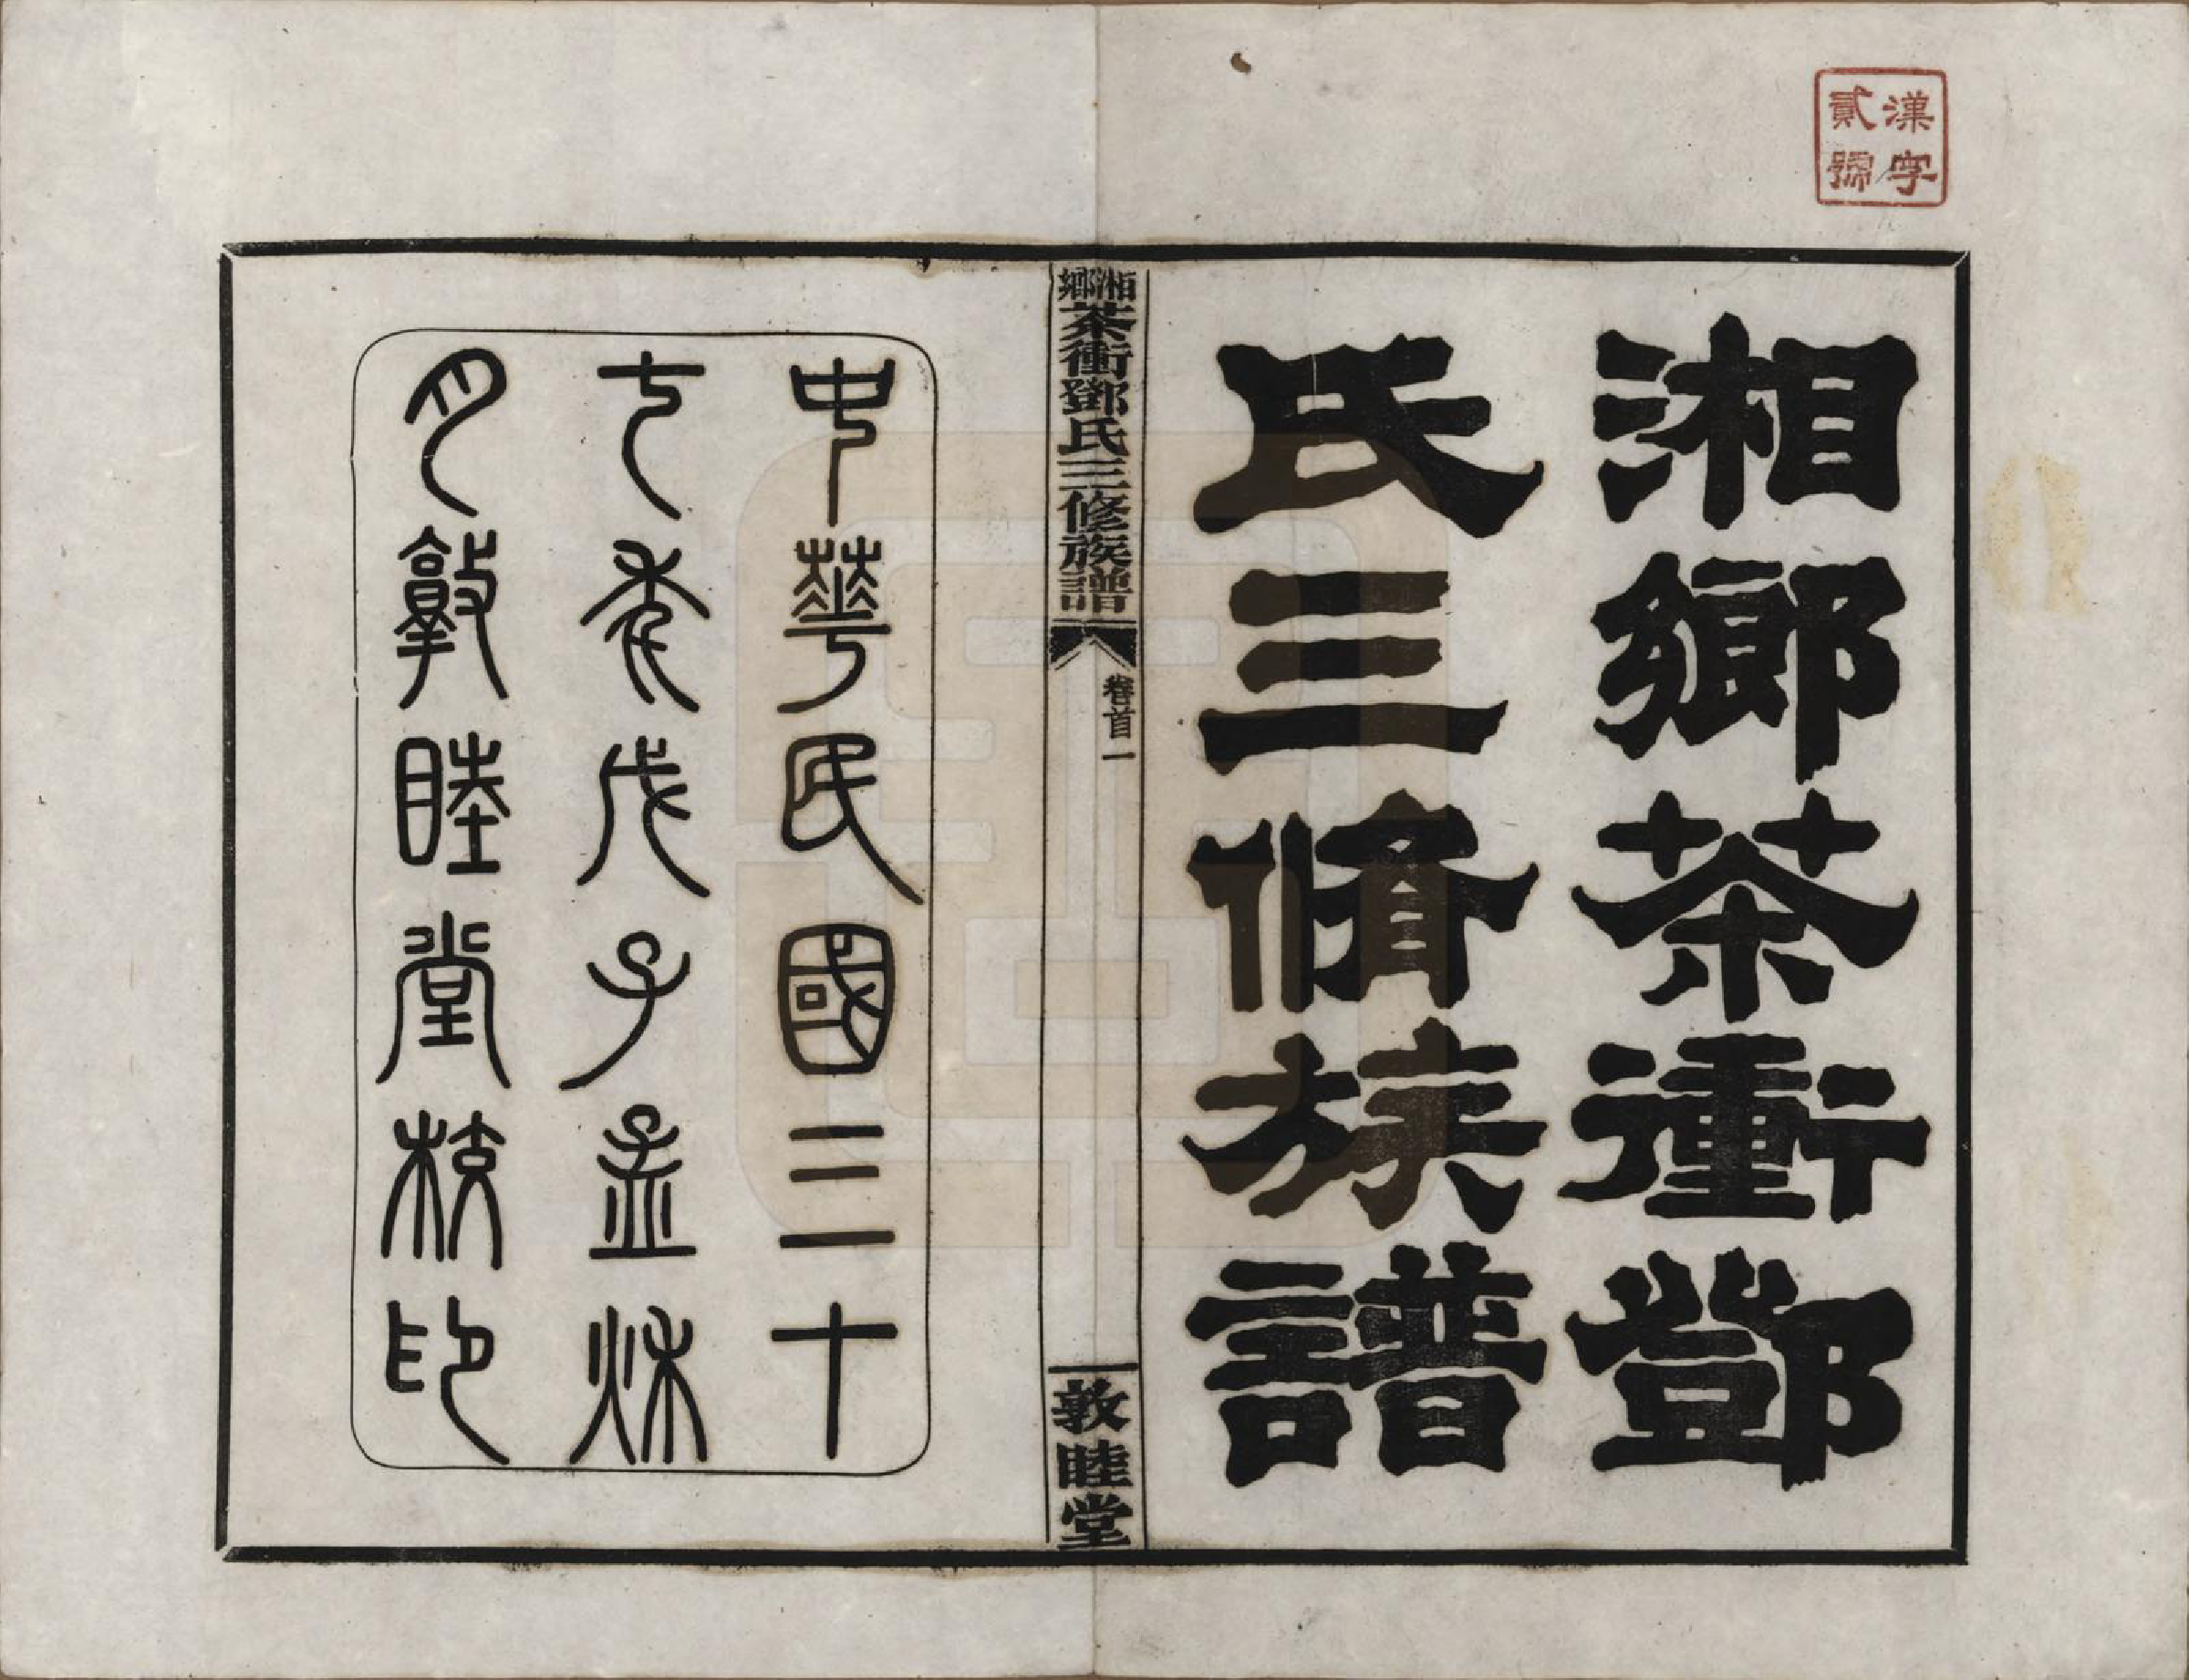 漢字
貳號
湘鄉茶衝鄧
氏三脩族譜
湘鄉茶衝鄧氏三修族譜
卷首一
敦睦堂
中華民國三十
七年戊子孟秌
月敦睦堂梓印